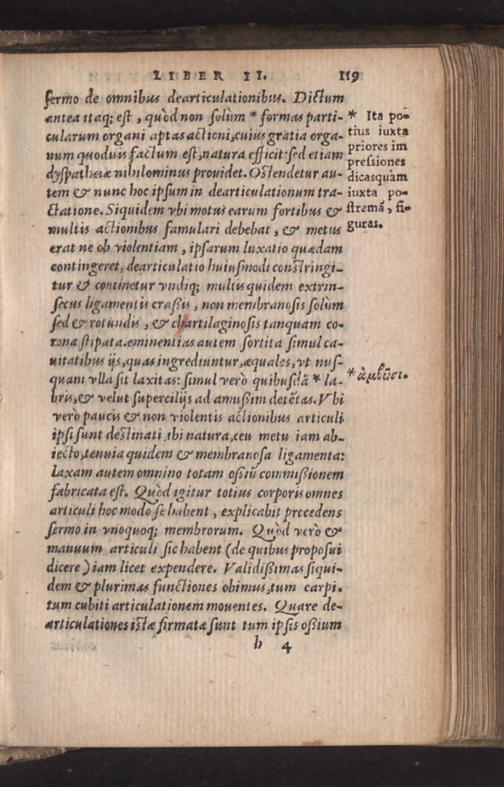 LIBER II. 119
sermo de omnibus dearticulationibus. Dictum
antea itaq; est, quòd non solùm * formas parti-
cularum organi aptas actioni, cuius gratia orga-
num quoduis factum est, natura efficit: sed etiam
dyspatheiæ nihilominus prouidet. Ostendetur au-
tem & nunc hoc ipsum in dearticulationum tra-
ctatione. Siquidem vbi motus earum fortibus &
multis actionibus famulari debebat, & metus
erat ne ob violentiam, ipsarum luxatio quædam
contingeret, dearticulatio huiusmodi constringi-
tur & continetur vndiq; multis quidem extrin-
secus ligamentis crassis, non membranosis solùm
sed & rotundis, & chartilaginosis tanquam co-
rona stipata. eminentias autem sortita simul ca-
uitatibus ijs, quas ingrediuntur, æquales, vt nus-
quam vlla sit laxitas: simul verò quibusdã * la-
bris, & velut supercilijs ad amussim detẽtas. Vbi
verò paucis & non violentis actionibus articuli
ipsi sunt destinati, ibi natura, ceu metu iam ab-
iecto, tenuia quidem & membranosa ligamenta:
laxam autem omnino totam ossiũ commissionem
fabricata est. Quòd igitur totius corporis omnes
articuli hoc modo se habent, explicabit procedens
sermo in vnoquoq; membrorum. Quòd verò &
manuum articuli sic habent (de quibus proposui
dicere) iam licet expendere. Validissimas siqui-
dem & plurimas functiones obimus, tum carpi,
tum cubiti articulationem mouentes. Quare de-
articulationes istæ firmatæ sunt tum ipsis ossium
h 4
* Ita po-
tius iuxta
priores im
pressiones
dicas quàm
iuxta po-
stremã, fi-
guras.
* ἄμβωσι.